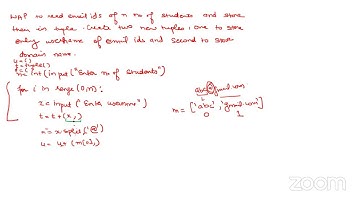 WAP to read email ids of n no of students and store
them in tuple. Create two new tuples, one to store
only username of email ids and second to store
domain name.
u=()
t=tuple()
n=int(input("Enter no of students")
for i in range(0,n):
x=input("Enter username")
t=t+(x,)
m=x.split('@')
u=u+(m[0],)
abc@gmail.com
m=['abc','gmail.com']
0 1
zoom